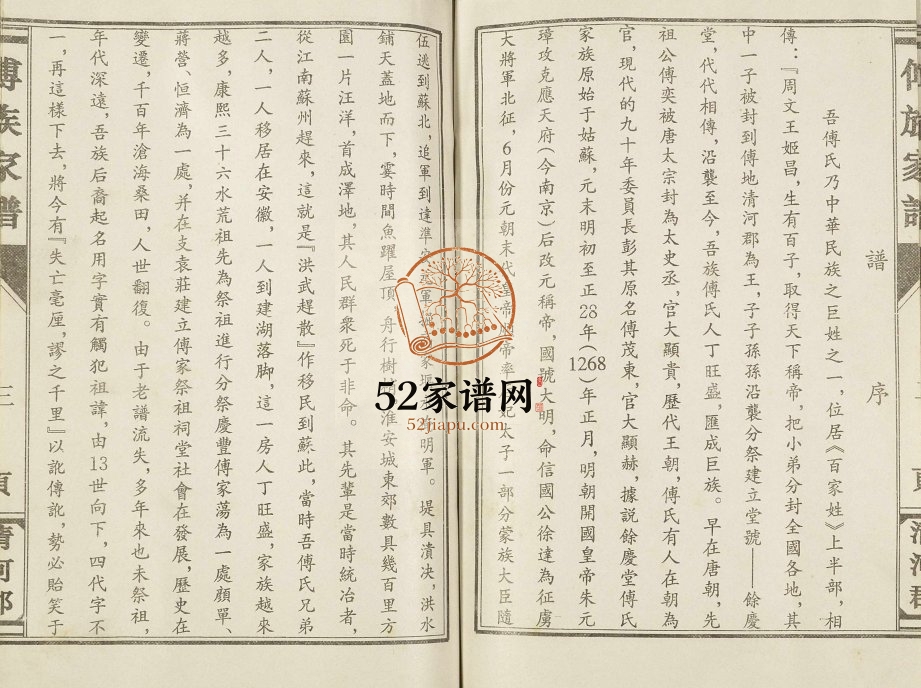 譜序
吾傅氏乃中華民族之巨姓之一，位居《百家姓》上半部，相
傳：『周文王姬昌，生有百子，取得天下稱帝，把小弟分封全國各地，其
中一子被封到傅地清河郡為王，子子孫孫沿襲分祭建立堂號——餘慶
堂，代代相傳，沿襲至今，吾族傅氏人丁旺盛，匯成巨族。早在唐朝，先
祖公傅奕被唐太宗封為太史丞，官大顯貴，歷代王朝，傅氏有人在朝為
官，現代的九十年委員長彭其原名傅茂東，官大顯赫，據説餘慶堂傅氏
家族原始于姑蘇，元末明初至正28年（1268）年正月，明朝開國皇帝朱元
璋攻克應天府（今南京）后改元稱帝，國號大明，命信國公徐達為征虜
大將軍北征，6月份元朝末代皇帝
帝率
妃太子一部分蒙族大臣隨
伍逃到蘇北，追軍到達準
軍
家堰
明軍。堤具潰決，洪水
鋪天蓋地而下，霎時間魚躍屋頂，舟行樹
淮安城東郊數具幾百里方
園一片汪洋，首成澤地，其人民群衆死于非命。其先輩是當時統治者，
從江南蘇州趕來，這就是『洪武趕散』作移民到蘇此，當時吾傅氏兄弟
二人，一人移居在安徽，一人到建湖落脚，這一房人丁旺盛，家族越來
越多，康熙三十六水荒祖先為祭祖進行分祭慶豐傅家蕩為一處顧單、
蔣營、恒濟為一處，并在支袁莊建立傅家祭祖祠堂社會在發展，歷史在
變遷，千百年滄海桑田，人世翻復。由于老譜流失，多年來也未祭祖，
年代深遠，吾族后裔起名用字實有觸犯祖諱，由13世向下，四代字不
一，再這樣下去，將今有『失亡毫厘，謬之千里』以訛傳訛，勢必貽笑于
傅族家譜
三
頁
清河郡
52家谱网
52jiapu.com